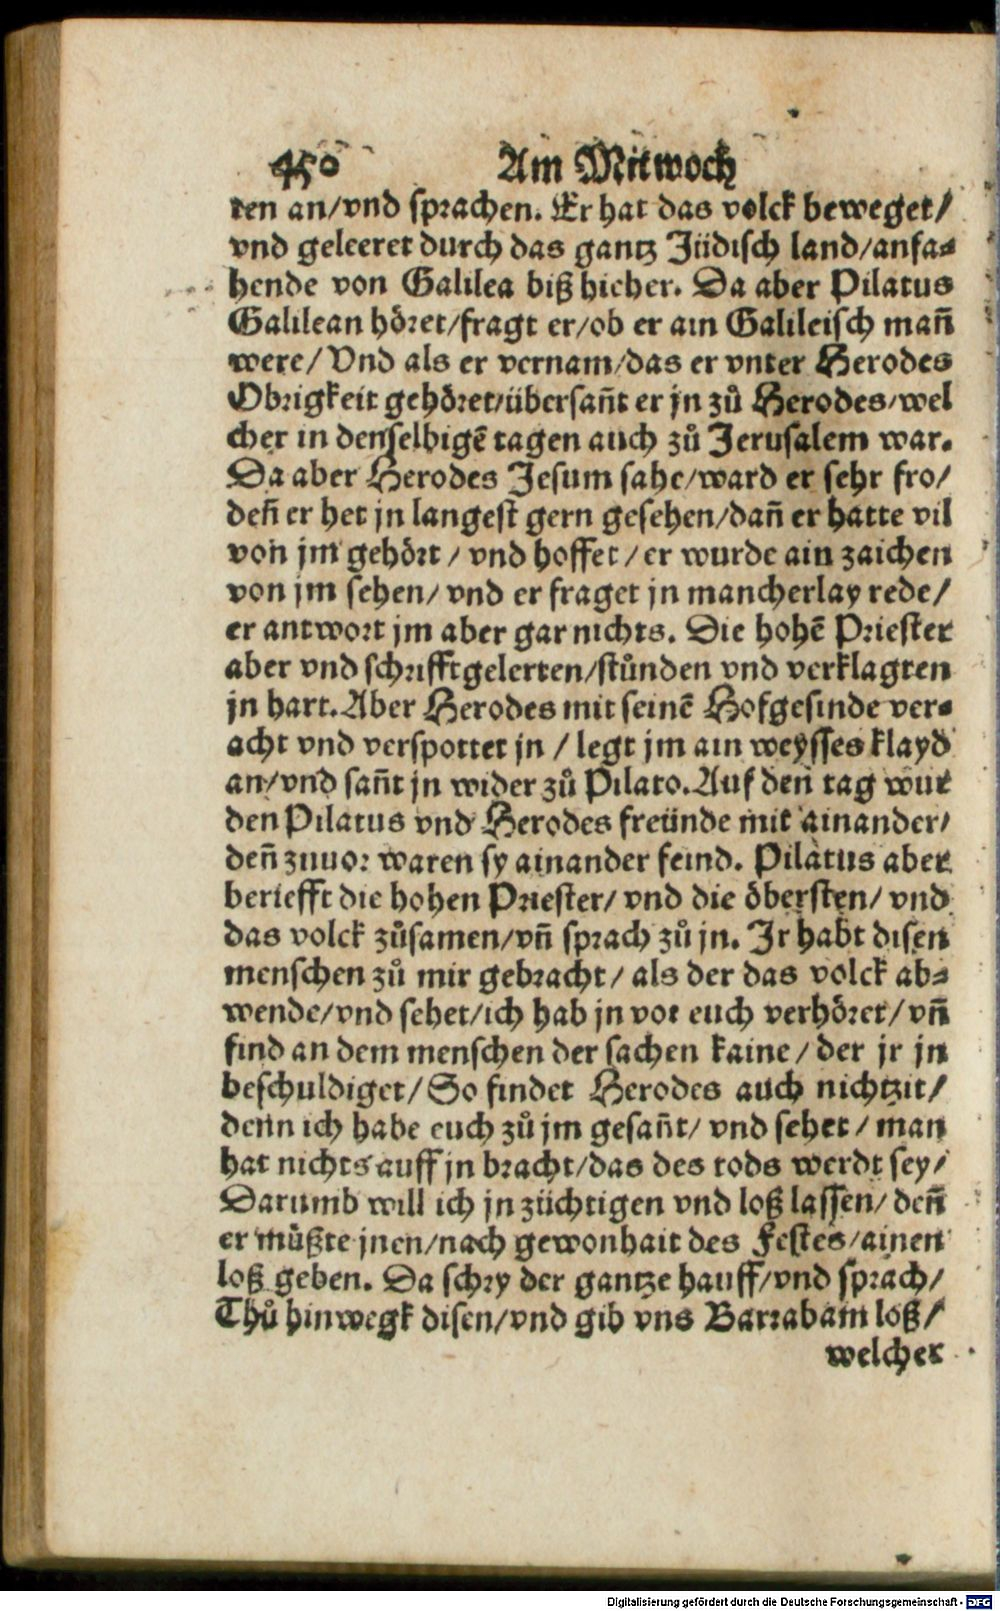 450 Am Mitwoch
ten an/vnd sprachen. Er hat das volck beweget/
vnd geleeret durch das gantz Jüdisch land/anfa⸗
hende von Galilea biß hieher. Da aber Pilatus
Galilean höret/fragt er/ob er ain Galileisch mañ
were/ Vnd als er vernam/das er vnter Herodes
Obrigkeit gehöret/übersañt er jn zů Herodes/wel
cher in denselbigē tagen auch zů Jerusalem war.
Da aber Herodes Jesum sahe/ward er sehr fro/
deñ er het jn langest gern gesehen/dañ er hatte vil
von jm gehört / vnd hoffet / er wurde ain zaichen
von jm sehen/ vnd er fraget jn mancherlay rede/
er antwort jm aber gar nichts. Die hohē Priester
aber vnd schrifftgelerten/stůnden vnd verklagten
jn hart. Aber Herodes mit seinē Hofgesinde ver⸗
acht vnd verspottet jn / legt jm ain weysses klayd
an/vnd sañt jn wider zů Pilato. Auf den tag wur
den Pilatus vnd Herodes freünde mit ainander/
deñ zuuor waren sy ainander feind. Pilatus aber
beriefft die hohen Priester/ vnd die öbersten/ vnd
das volck zůsamen/vñ sprach zů jn. Jr habt disen
menschen zů mir gebracht/ als der das volck ab⸗
wende/vnd sehet/ich hab jn vor euch verhöret/ vñ
find an dem menschen der sachen kaine/ der jr jn
beschuldiget/ So findet Herodes auch nichtzit/
denn ich habe euch zů jm gesañt/ vnd sehet / man
hat nichts auff jn bracht/das des tods werdt sey/
Darumb will ich jn züchtigen vnd loß lassen/ deñ
er můßte jnen/nach gewonhait des Festes/ainen
loß geben. Da schry der gantze hauff/vnd sprach/
Thů hinwegk disen/vnd gib vns Barrabam loß/
welcher
Digitalisierung gefördert durch die Deutsche Forschungsgemeinschaft - DFG